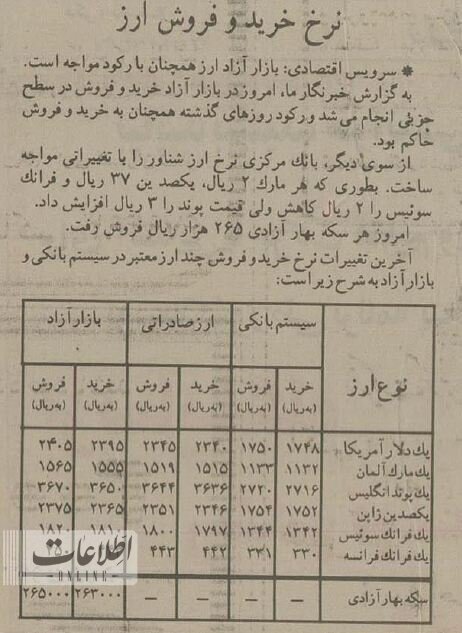 نرخ خرید و فروش ارز
* سرویس اقتصادی: بازار آزاد ارز همچنان با رکود مواجه است.
به گزارش خبرنگار ما، امروز در بازار آزاد خرید و فروش در سطح
جزیی انجام می شد و رکود روزهای گذشته همچنان به خرید و فروش
حاکم بود.
از سوی دیگر، بانک مرکزی نرخ ارز شناور را با تغییراتی مواجه
ساخت. بطوری که هر مارک ۲ ریال، یکصد ین ۳۷ ریال و فرانک
سوئیس را ۲ ریال کاهش ولی قیمت پوند را ۳ ریال افزایش داد.
امروز هر سکه بهار آزادی ۲۶۵ هزار ریال فروش رفت.
آخرین تغییرات نرخ خرید و فروش چند ارز معتبر در سیستم بانکی و
بازار آزاد به شرح زیر است:
نوع ارز سیستم بانکی ارز صادراتی بازار آزاد
خرید فروش خرید فروش خرید فروش
(به ریال) (به ریال) (به ریال) (به ریال) (به ریال) (به ریال)
یک دلار آمریکا ۱۷۴۸ ۱۷۵۰ ۲۳۴۰ ۲۳۴۵ ۲۳۹۵ ۲۴۰۵
یک مارک آلمان ۱۱۳۲ ۱۱۳۳ ۱۵۱۵ ۱۵۱۹ ۱۵۵۵ ۱۵۶۵
یک پوند انگلیس ۲۷۱۶ ۲۷۲۰ ۳۶۳۶ ۳۶۴۴ ۳۶۵۰ ۳۶۷۰
یکصد ین ژاپن ۱۷۵۲ ۱۷۵۴ ۲۳۴۶ ۲۳۵۱ ۲۳۶۵ ۲۳۷۵
یک فرانک سوئیس ۱۳۴۲ ۱۳۴۴ ۱۷۹۷ ۱۸۰۰ ۱۸۲۰
یک فرانک فرانسه ۳۳۰ ۳۳۱ ۴۴۲ ۴۴۳
سکه بهار آزادی – – – – ۲۶۳۰۰۰ ۲۶۵۰۰۰
اطلاعات
ONLINE